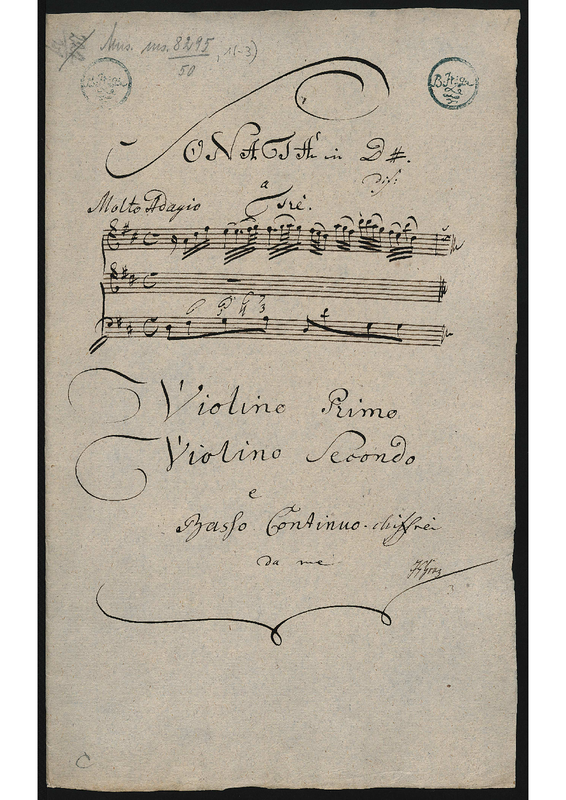 Mus. ms. 8295, 1(-3)
50
SONATA in D#.
a
Tre.
Molto Adagio
Violino Primo
Violino Secondo
e
Basso Continuo
da me
C